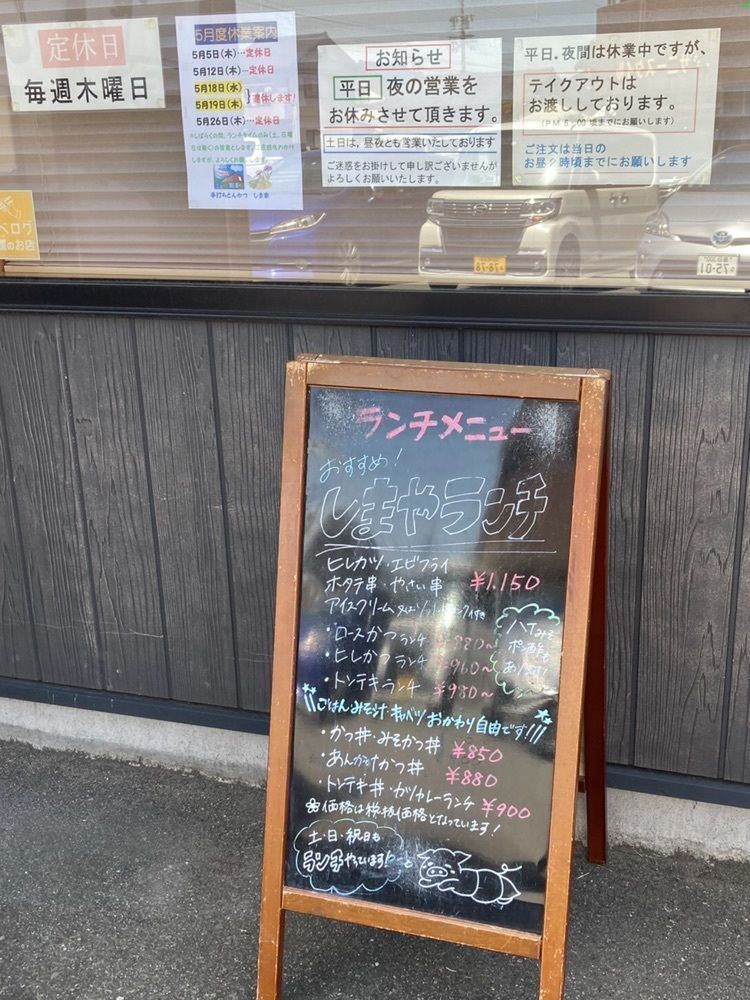 定休日
毎週木曜日
5月度休業案内
5月5日(木)…定休日
5月12日(木)…定休日
5月18日(水)
5月19日(木)
連休します!
5月26日(木)…定休日
手打ちとんかつ しま家
お知らせ
平日 夜の営業を
お休みさせて頂きます。
土日は、昼夜とも営業いたしております
ご迷惑をお掛けして申し訳ございませんが
よろしくお願いいたします。
平日.夜間は休業中ですが、
テイクアウトは
お渡ししております。
(PM 5:00 頃までにお願いします)
ご注文は当日の
お昼2時頃までにお願いします
ベログ
のお店
78-78
75-01
ランチメニュー
おすすめ!
しまやランチ
ヒレカツ・エビフライ
ホタテ串・やさい串 ¥1.150
アイスクリーム
・ロースかつランチ ¥880~
・ヒレかつランチ ¥960~
・トンテキランチ ¥980~
八丁みそ
ポン酢も
あります!
ごはんみそ汁キャベツおかわり自由です!!!
・かつ丼・みそかつ丼 ¥850
・あんかけかつ丼 ¥880
・トンテキ丼・カツカレーランチ ¥900
※価格は税抜価格となっています!
土・日・祝日も
ランチやっています!